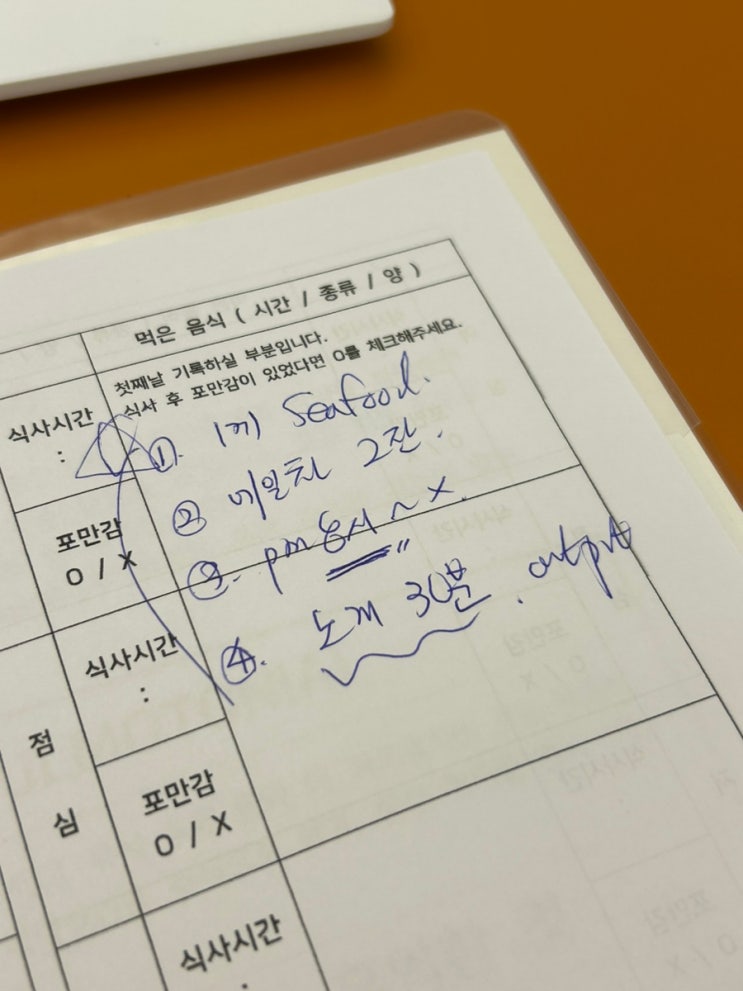 먹은 음식 ( 시간 / 종류 / 양 )
첫째날 기록하실 부분입니다.
식사 후 포만감이 있었다면 O를 체크해주세요.
식사시간
:
① 1끼 Seafood.
② 메밀차 2잔.
포만감
O / X
③. pm 8시 ~ X.
④. 노래 30분. output
식사시간
:
점
심
포만감
O / X
식사시간
: